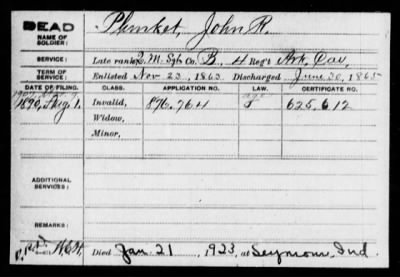 DEAD
NAME OF SOLDIER: Plunket, John R.
SERVICE: Late rank Q. M. Sgt. Co. B, 4 Reg't Ark. Cav.
TERM OF SERVICE: Enlisted Nov 23, 1863 Discharged June 30, 1865
DATE OF FILING. CLASS. APPLICATION NO. LAW. CERTIFICATE NO.
1890, Aug 1. Invalid, 896.764 625.612
Widow,
Minor,
ADDITIONAL SERVICES:
REMARKS:
Died Jan. 21, 1923, at Seymour, Ind.